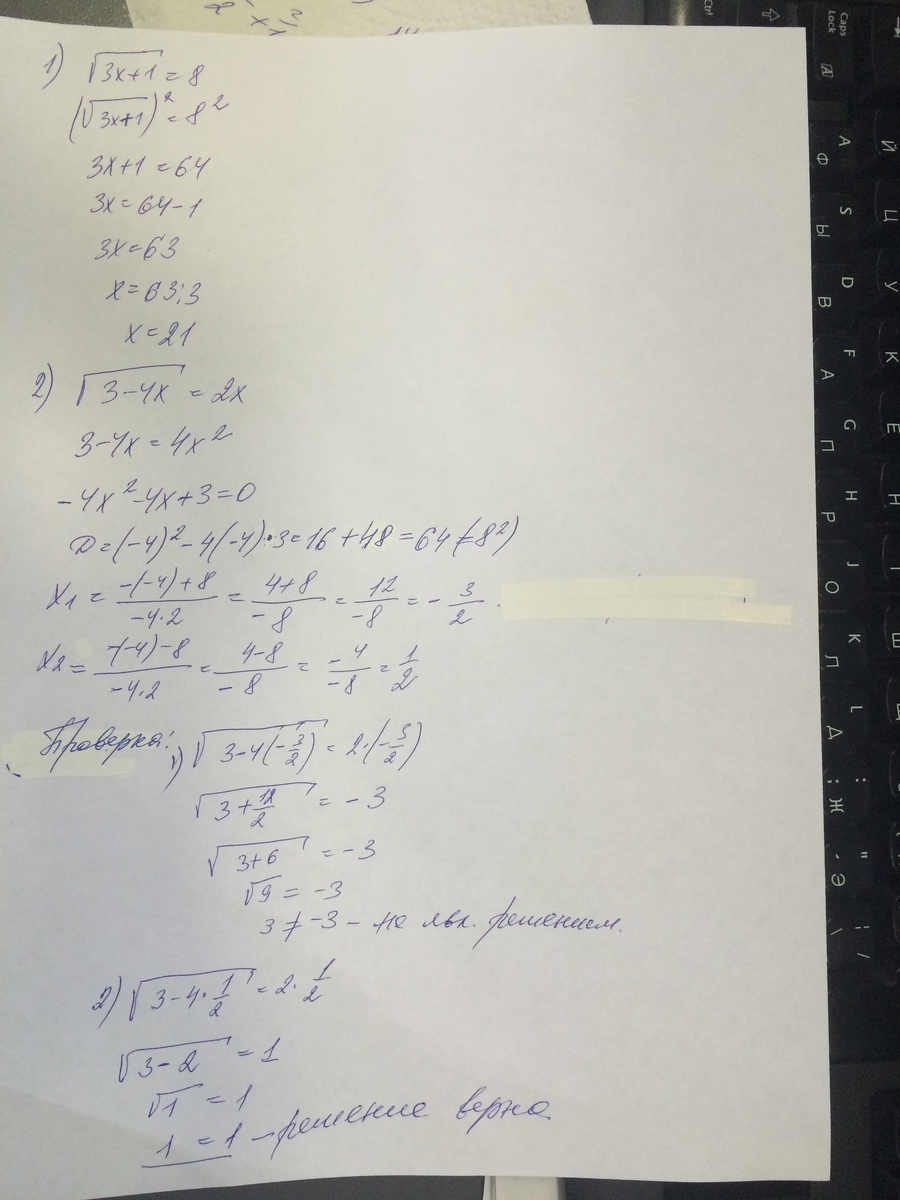 1) √3x+1 = 8
(√3x+1)² = 8²
3x+1 = 64
3x = 64-1
3x = 63
x = 63:3
x = 21
2) √3-4x = 2x
3-4x = 4x²
-4x²-4x+3=0
D=(-4)²-4(-4)·3=16+48=64(=8²)
x₁ = -(-4)+8/-4·2 = 4+8/-8 = 12/-8 = -3/2.
x₂ = -(-4)-8/-4·2 = 4-8/-8 = -4/-8 = 1/2
Проверка: 1) √3-4(-3/2) = 2·(-3/2)
√3+12/2 = -3
√3+6 = -3
√9 = -3
3 ≠ -3 - не явл. решением.
2) √3-4·1/2 = 2·1/2
√3-2 = 1
√1 = 1
1 = 1 - решение верно
Ctrl
Caps Lock
A
A Ф
S Ы
D В
F А
G П
H Р
J О
K Л
L Д
: ; Ж
" ' Э
Й
Ц
У
К
Е
Н